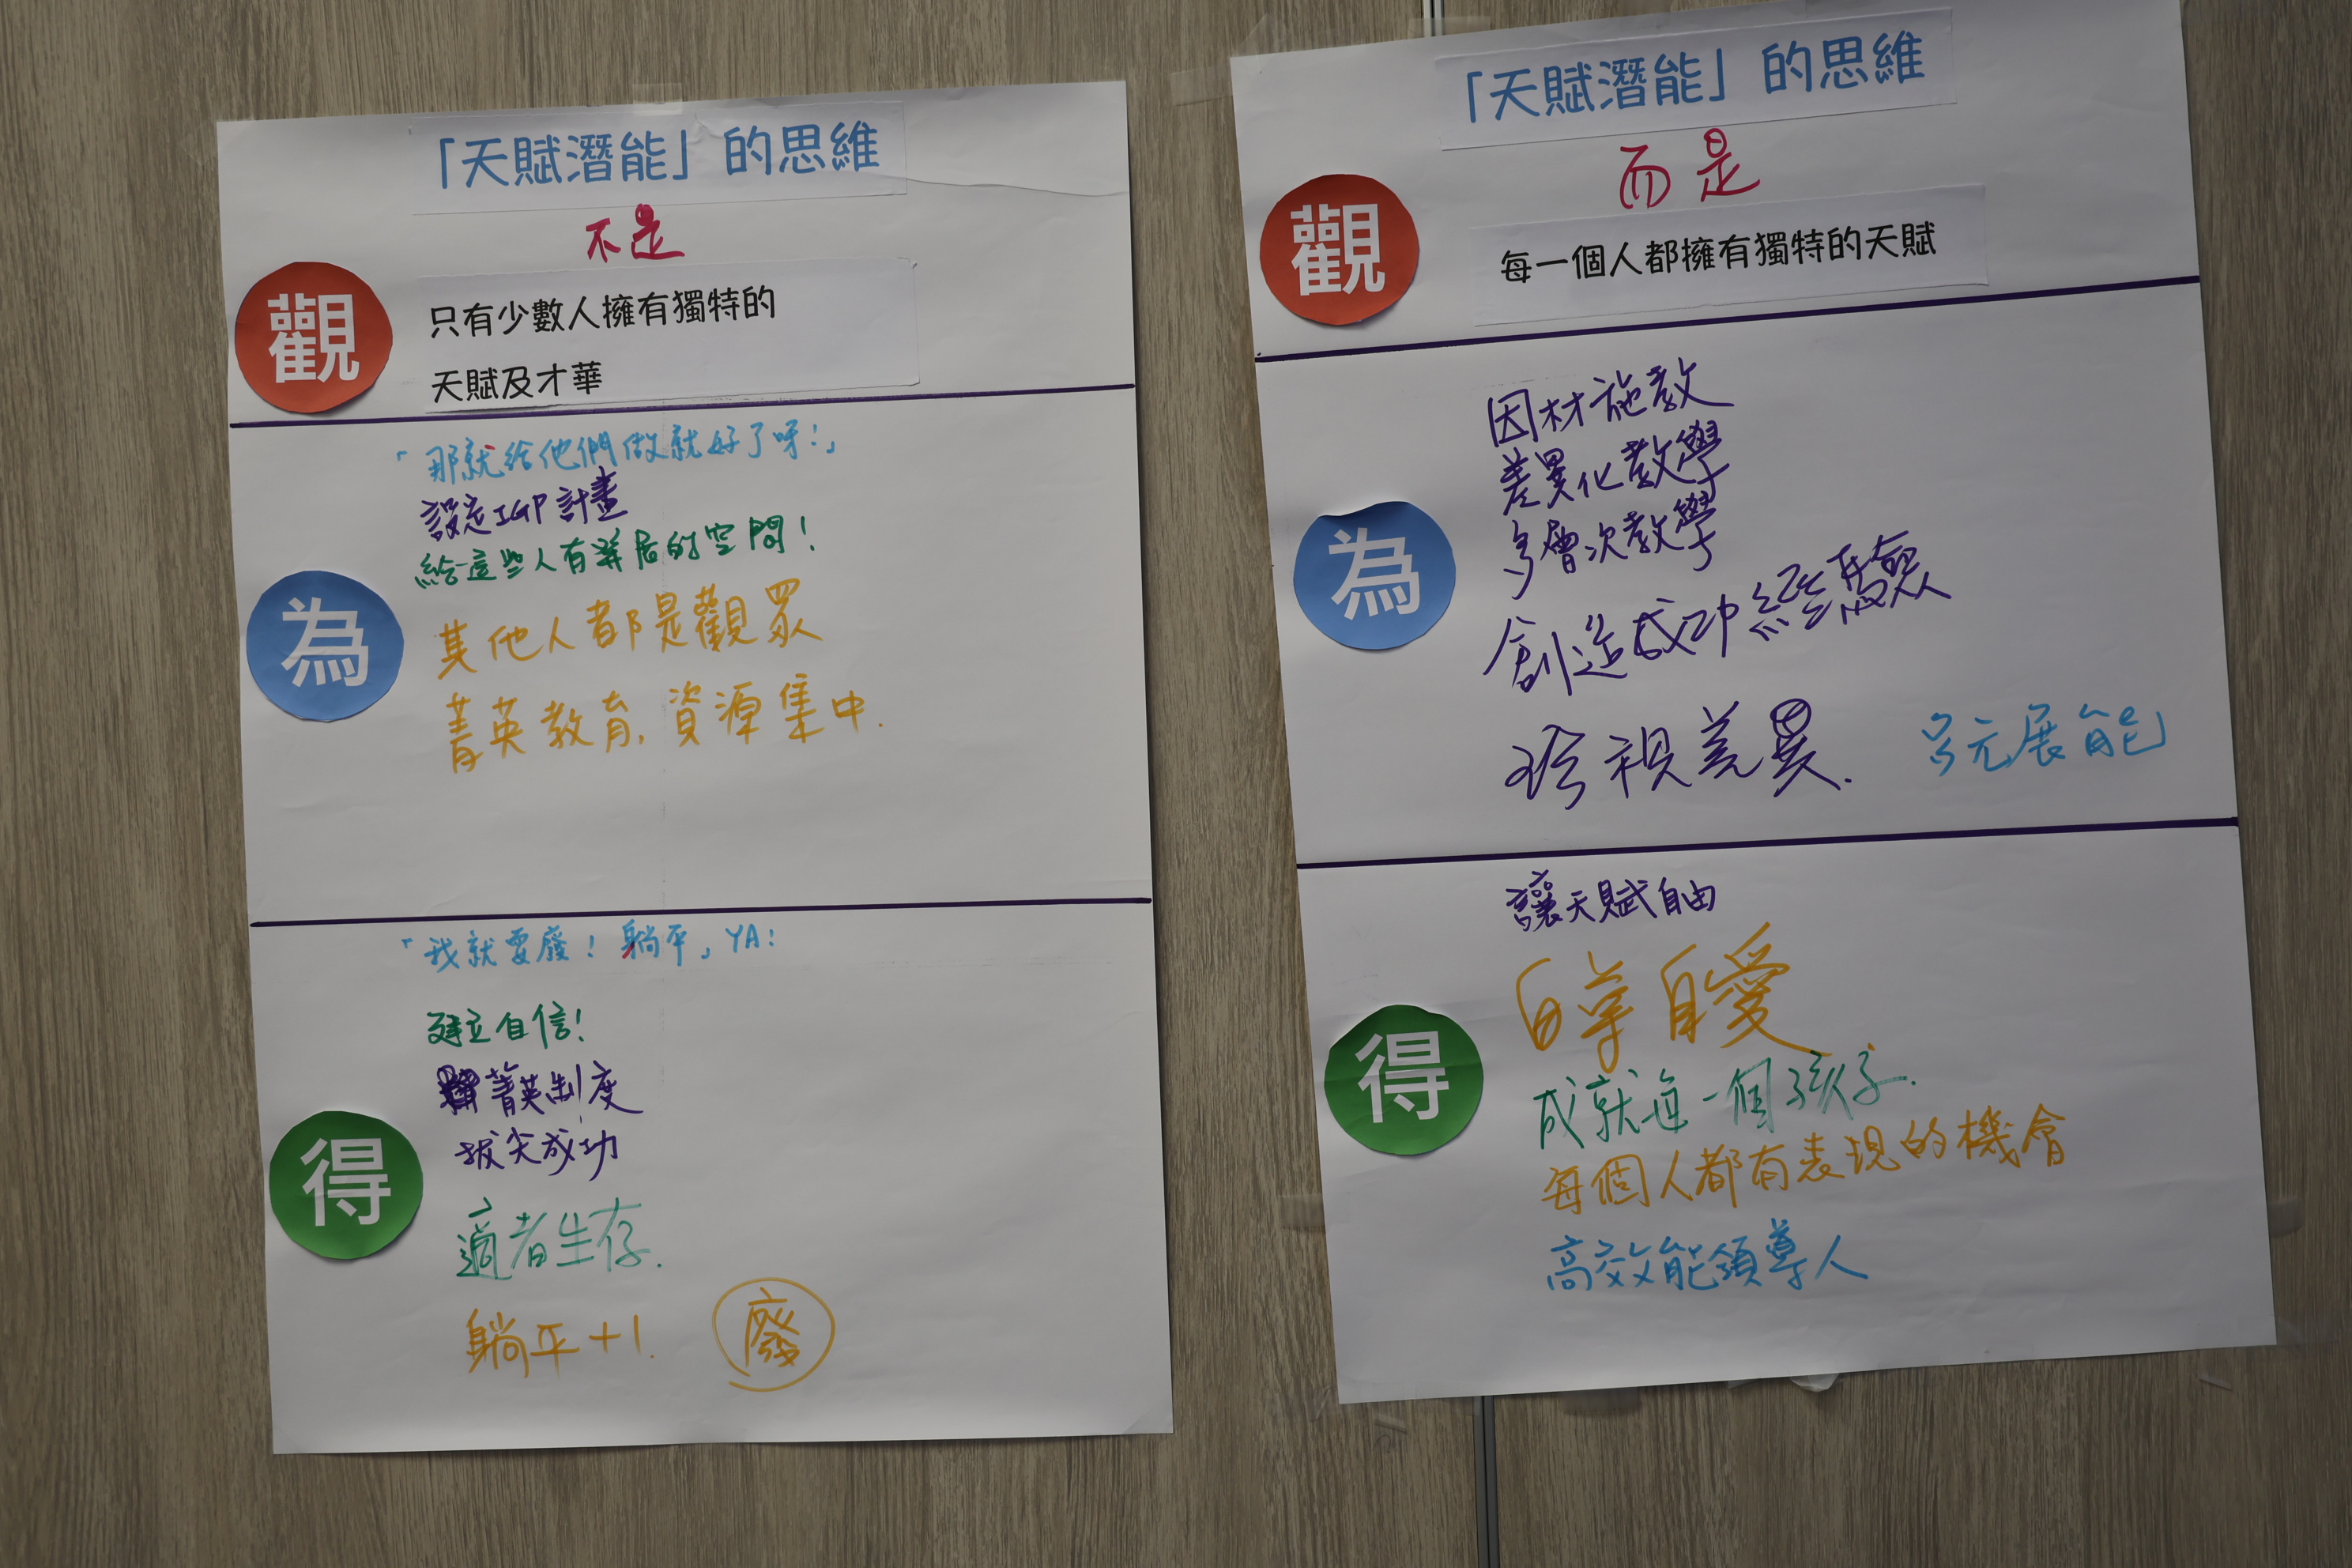 「天賦潛能」的思維
不是
觀
只有少數人擁有獨特的
天賦及才華
「那就給他們做就好了呀!」
設定IGP計畫
給這些人有発展的空間!
為
其他人都是觀眾
菁英教育,資源集中.
「我就要廢!躺平」YA!
建立自信!
菁英制度
拔尖成功
得
適者生存.
躺平+1.
廢
「天賦潛能」的思維
而是
觀
每一個人都擁有獨特的天賦
因材施教
差異化教學
多層次教學
為
創造成功經驗
珍視差異.
多元展能
讓天賦自由
自尊自愛
得
成就每一個孩子.
每個人都有表現的機會
高效能領導人